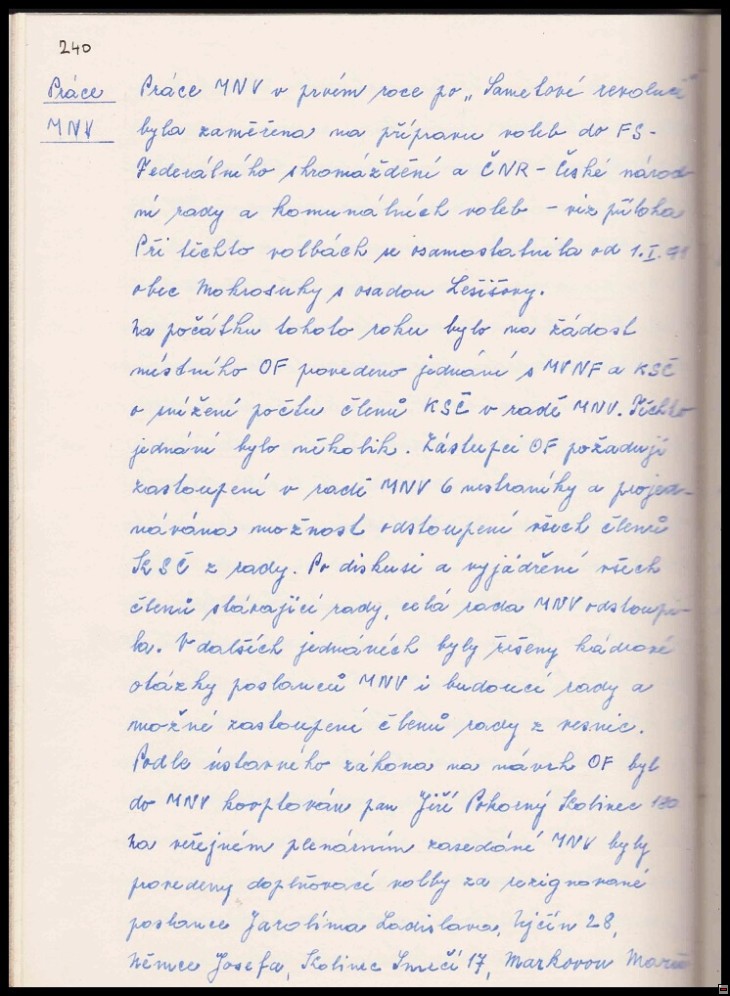 240
Práce
MNV
Práce MNV v prvém roce po „Sametové revoluci"
byla zaměřena na přípravu voleb do FS-
Federálního shromáždění a ČNR - České národ-
ní rady a komunálních voleb - viz příloha
Při těchto volbách se osamostatnila od 1.I.91
obec Mokrosuky s osadou Lešišovy.
Na počátku tohoto roku bylo na žádost
místního OF provedeno jednání s MVNF a KSČ
o snížení počtu členů KSČ v radě MNV. Těchto
jednání bylo několik. Zástupci OF požadují
zastoupení v radě MNV 6 nestraníky a projed-
návána možnost odstoupení všech členů
KSČ z rady. Po diskusi a vyjádření všech
členů stávající rady, celá rada MNV odstoupi-
la. V dalších jednáních byly řešeny kádrové
otázky poslanců MNV i budoucí rady a
možné zastoupení členů rady z vesnic.
Podle ústavného zákona na návrh OF byl
do MNV kooptován pan Jiří Pokorný Kolinec 180
Na veřejném plenárním zasedání MNV byly
provedeny doplňovací volby za rezignované
poslance Jarolíma Ladislava, Ujčín 28,
Němce Josefa, Kolinec Smečí 17, Markovou Marii